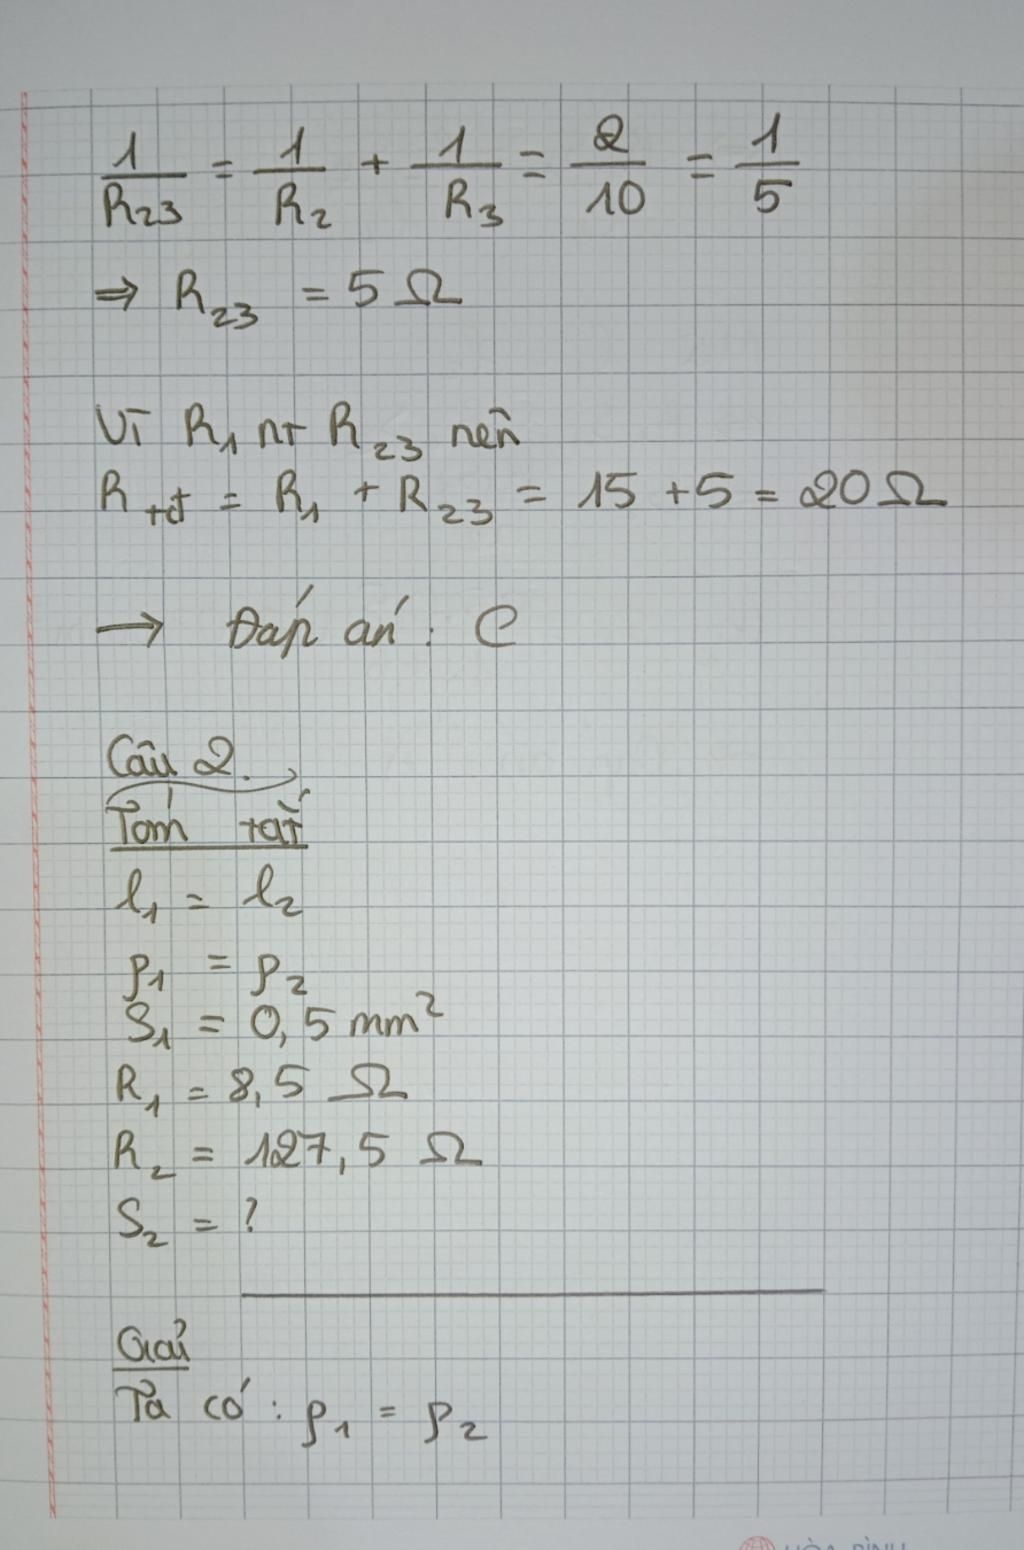 1/R₂₃ = 1/R₂ + 1/R₃ = 2/10 = 1/5
⇒ R₂₃ = 5 Ω
Vì R₁ nt R₂₃ nên
R_tđ = R₁ + R₂₃ = 15 + 5 = 20 Ω
→ Đáp án : C
Câu 2.
Tóm tắt
l₁ = l₂
ρ₁ = ρ₂
S₁ = 0,5 mm²
R₁ = 8,5 Ω
R₂ = 127,5 Ω
S₂ = ?
Giải
Ta có : ρ₁ = ρ₂